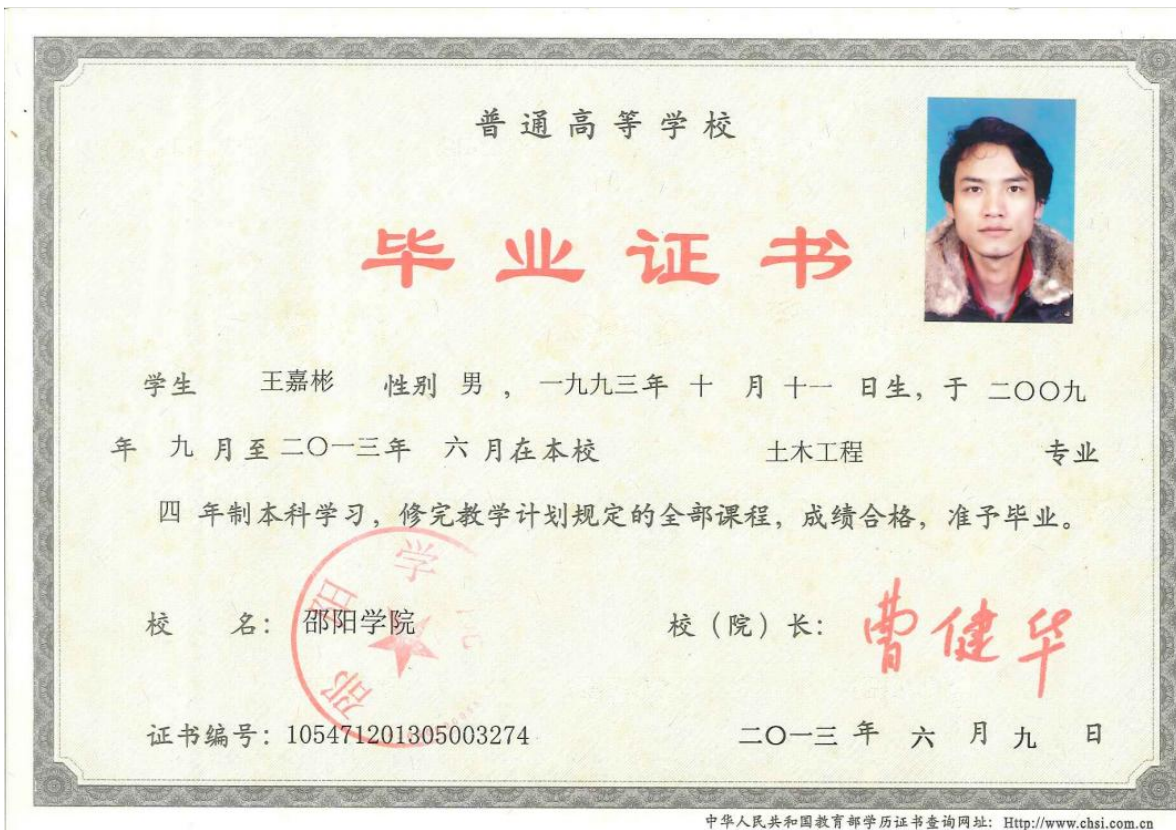 普通高等学校
毕业证书
学生 王嘉彬 性别 男 ，一九九三年 十 月 十一 日生，于 二〇〇九
年 九 月至二〇一三年 六 月在本校 土木工程 专业
四 年制本科学习，修完教学计划规定的全部课程，成绩合格，准予毕业。
校 名：邵阳学院 校（院）长：曹健华
邵阳学
证书编号：105471201305003274 二〇一三 年 六 月 九 日
中华人民共和国教育部学历证书查询网址：Http://www.chsi.com.cn